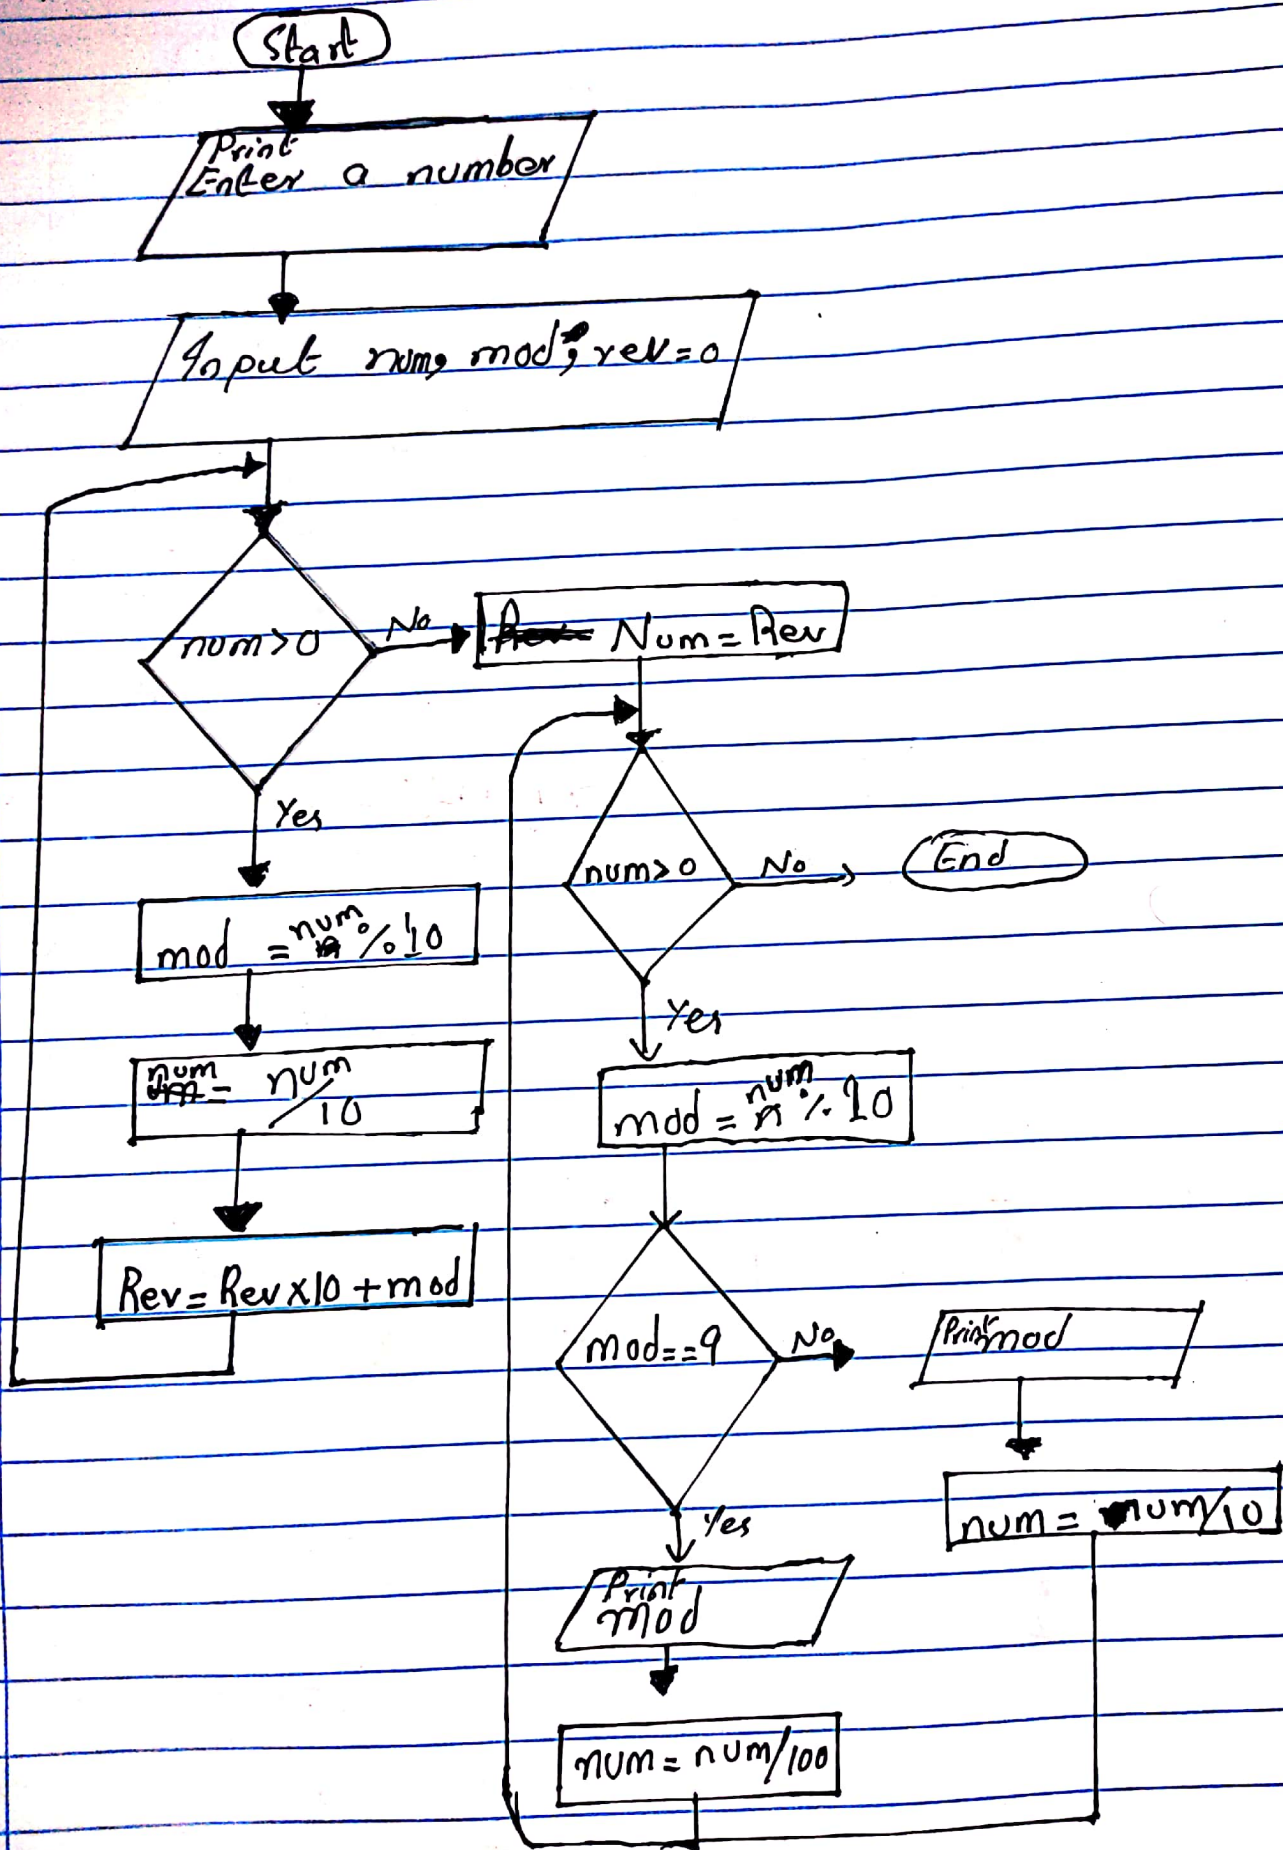 Start
Print
Enter a number
Input num, mod, rev=0
num>0
No
Num = Rev
Yes
mod = num % 10
num = num/10
Rev = Rev x10 + mod
num>0
No
End
Yes
mod = num % 10
mod==9
No
Print mod
num = num/10
Yes
Print
mod
num = num/100